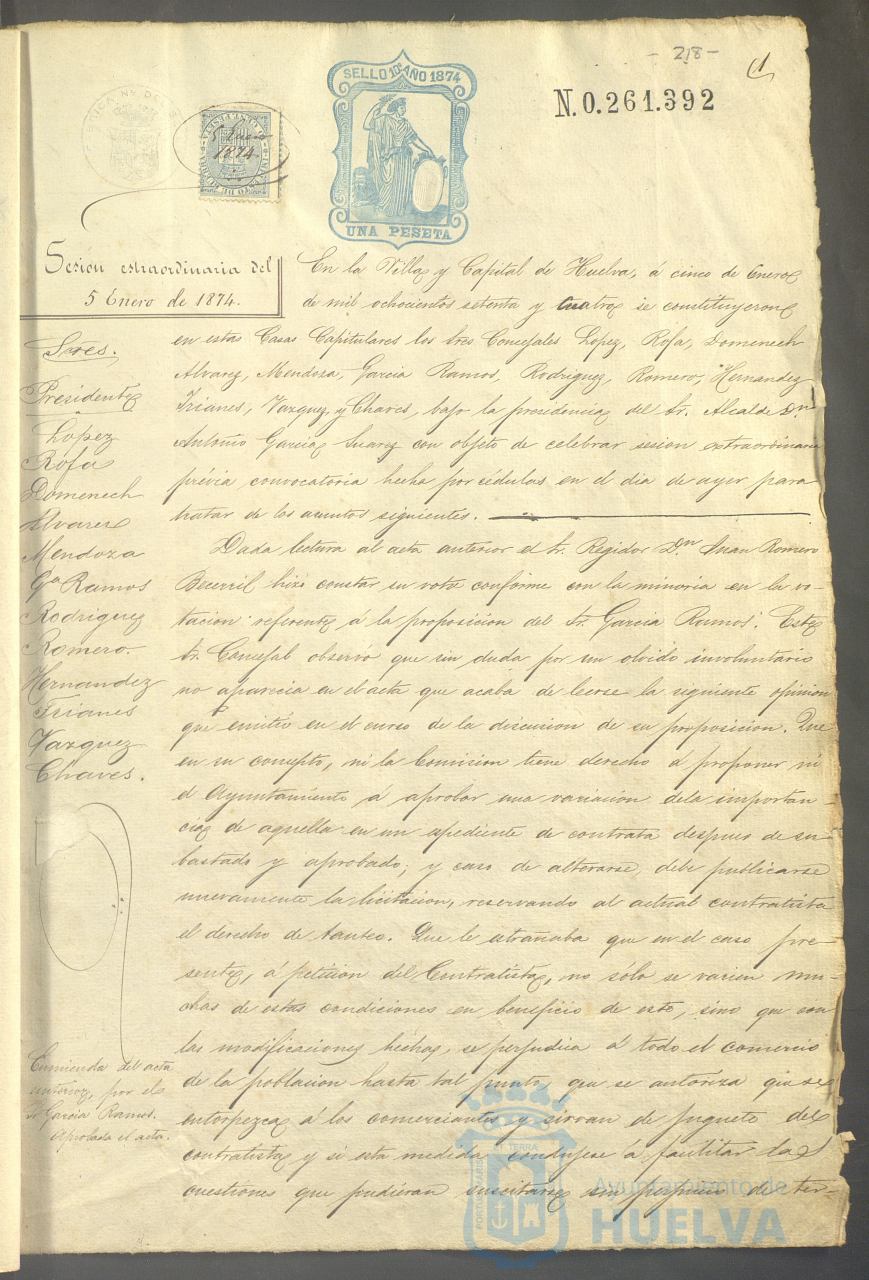 - 218 -
1
SELLO 10º AÑO 1874
UNA PESETA
N. 0.261.392
5 Enero
1874
Sesion estraordinaria del
5 Enero de 1874.
Sres.
Presidente
Lopez
Rofa
Domenech
Alvarez
Mendoza
Gª Ramos
Rodriguez
Romero.
Hernandez
Trianes
Vazquez
Chaves.
Enmienda del acta
anterior, por el
Sr Garcia Ramos.
Aprobada el acta.
En la Villa y Capital de Huelva, á cinco de Enero
de mil ochocientos setenta y cuatro se constituyeron
en estas Casas Capitulares los Sres Concejales Lopez, Rofa, Domenech
Alvarez, Mendoza, Garcia Ramos, Rodriguez, Romero, Hernandez
Trianes, Vazquez, y Chaves, bajo la presidencia del Sr. Alcalde Dn
Antonio Garcia Suarez con objeto de celebrar sesion extraordinaria
prévia convocatoria hecha por cédulas en el dia de ayer para
tratar de los asuntos siguientes.
Dada lectura al acta anterior el Sr. Regidor Dn Juan Romero
Becerril hizo constar su voto conforme con la minoria en la vo-
tacion referente á la proposicion del Sr. Garcia Ramos. Este
Sr. Concejal observó que sin duda por un olvido involuntario
no aparecia en el acta que acaba de leerse la siguiente opinion
que emitió en el curso de la discusion de su proposicion. Que
en su concepto, ni la Comision tiene derecho á proponer ni
el Ayuntamiento á aprobar una variacion dela importan-
cia de aquella en un espediente de contrata despues de su-
bastado y aprobado; y caso de alterarse, debe publicarse
nuevamente la licitacion, reservando al actual contratista
el derecho de tanteo. Que le estrañaba que en el caso pre-
sente, á peticion del Contratista, no sólo se varien mu-
chas de estas condiciones en beneficio de este, sino que con
las modificaciones hechas, se perjudica á todo el comercio
de la poblacion hasta tal punto, que se autoriza que se
entorpezca á los comerciantes y sirvan de juguete del
contratista y si esta medida condujese á facilitar las
cuestiones que pudieran suscitarse sin perjuicio de ter-
Ayuntamiento de
HUELVA